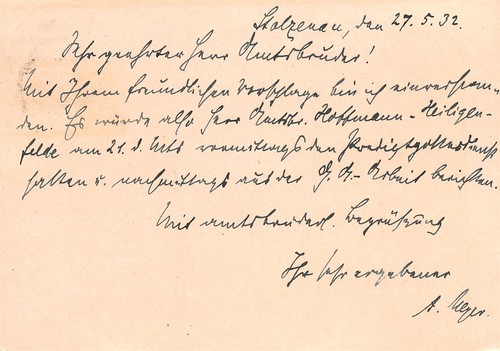 Stolzenau, den 27.5.32.
Sehr geehrter Herr Amtsbruder!
Mit Ihrem freundlichen Vorschlage bin ich einverstan-
den. Es würde also Herr Amtsbr. Hoffmann-Heiligen-
felde am 21. d. Mts vormittags den Predigtgottesdienst
halten u. nachmittags aus der G. A.-Arbeit berichten.
Mit amtsbrüderl. Begrüßung
Ihr sehr ergebener
A. Meyer.